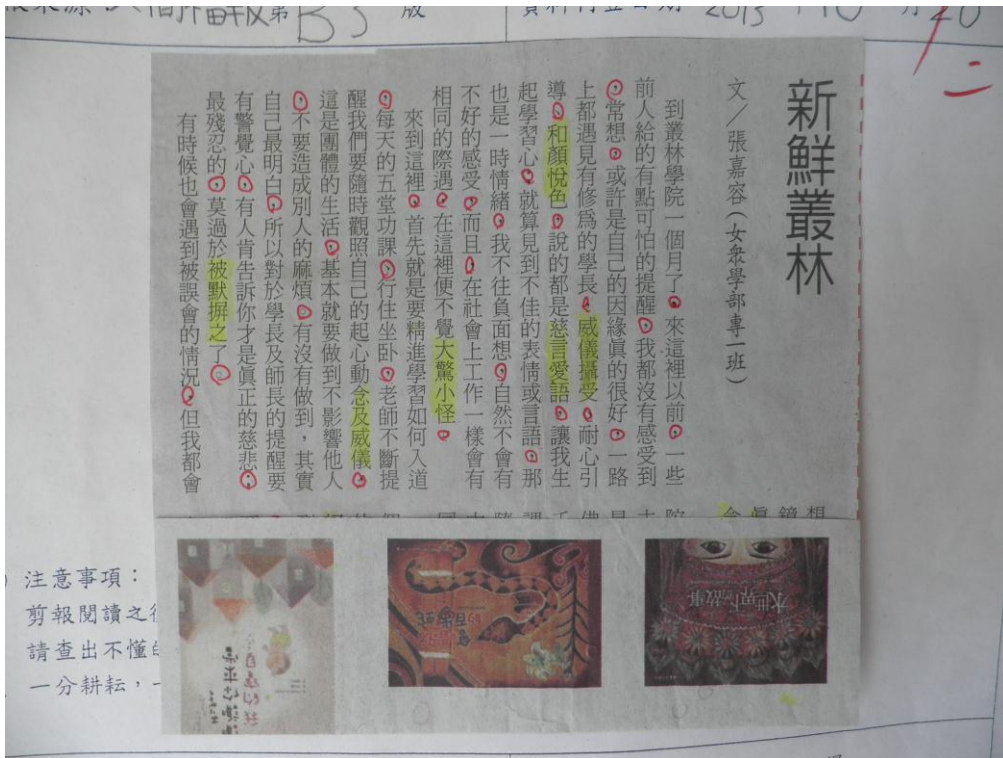 版
2013
10
月
20
新鮮叢林
文／張嘉容（女眾學部專一班）
到叢林學院一個月了，來這裡以前，一些
前人給的有點可怕的提醒，我都沒有感受到
，常想，或許是自己的因緣真的很好，一路
上都遇見有修為的學長，威儀攝受，耐心引
導，和顏悅色，說的都是慈言愛語，讓我生
起學習心，就算見到不佳的表情或言語，那
也是一時情緒，我不往負面想，自然不會有
不好的感受，而且，在社會上工作一樣會有
相同的際遇，在這裡便不覺大驚小怪。
來到這裡，首先就是要精進學習如何入道
，每天的五堂功課，行住坐臥，老師不斷提
醒我們要隨時觀照自己的起心動念及威儀。
這是團體的生活，基本就要做到不影響他人
，不要造成別人的麻煩。有沒有做到，其實
自己最明白，所以對於學長及師長的提醒要
有警覺心，有人肯告訴你才是真正的慈悲；
最殘忍的，莫過於被默摒之了。
有時候也會遇到被誤會的情況，但我都會
想
鏡
真
念
水世界下的故事
注意事項：
剪報閱讀之後
請查出不懂的
一分耕耘，一